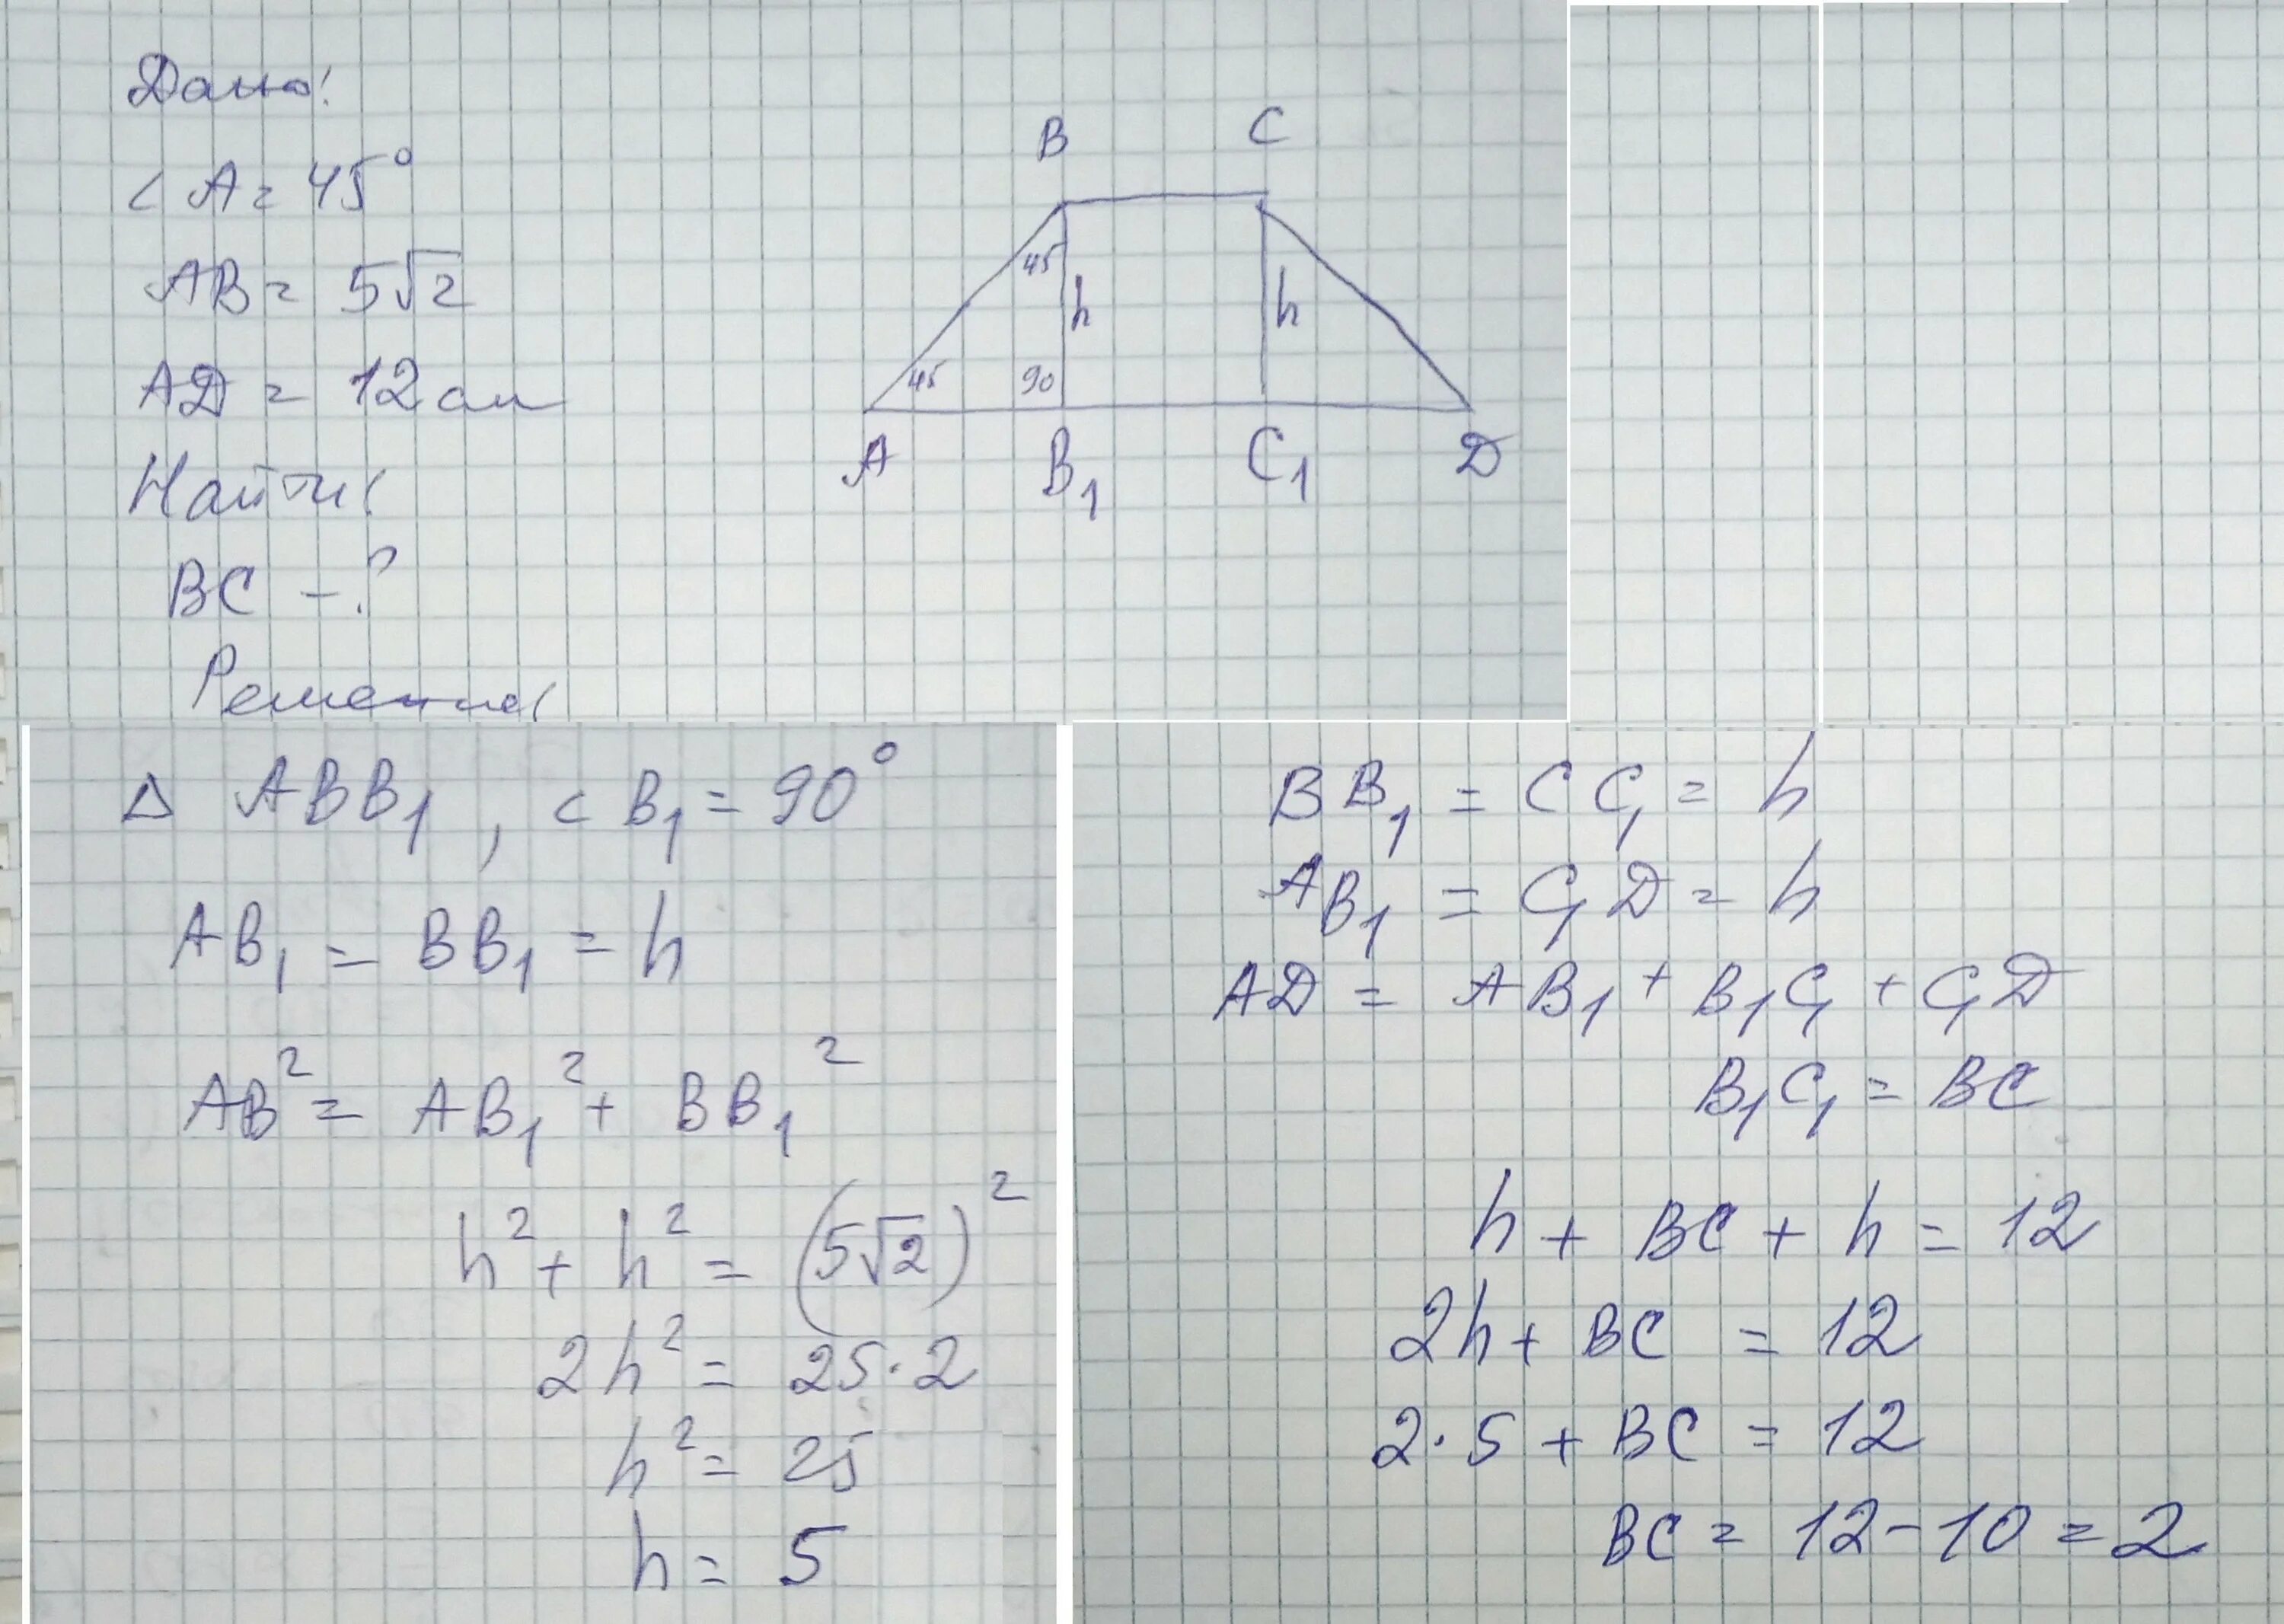 Дано:
< A = 45°
AB = 5√2
AD = 12 см
Найти:
BC - ?
Решение:
B C
45 h h
45 90
A B₁ C₁ D
Δ ABB₁, < B₁ = 90°
AB₁ = BB₁ = h
AB² = AB₁² + BB₁²
h² + h² = (5√2)²
2h² = 25·2
h² = 25
h = 5
BB₁ = CC₁ = h
AB₁ = C₁D = h
AD = AB₁ + B₁C₁ + C₁D
B₁C₁ = BC
h + BC + h = 12
2h + BC = 12
2·5 + BC = 12
BC = 12 - 10 = 2